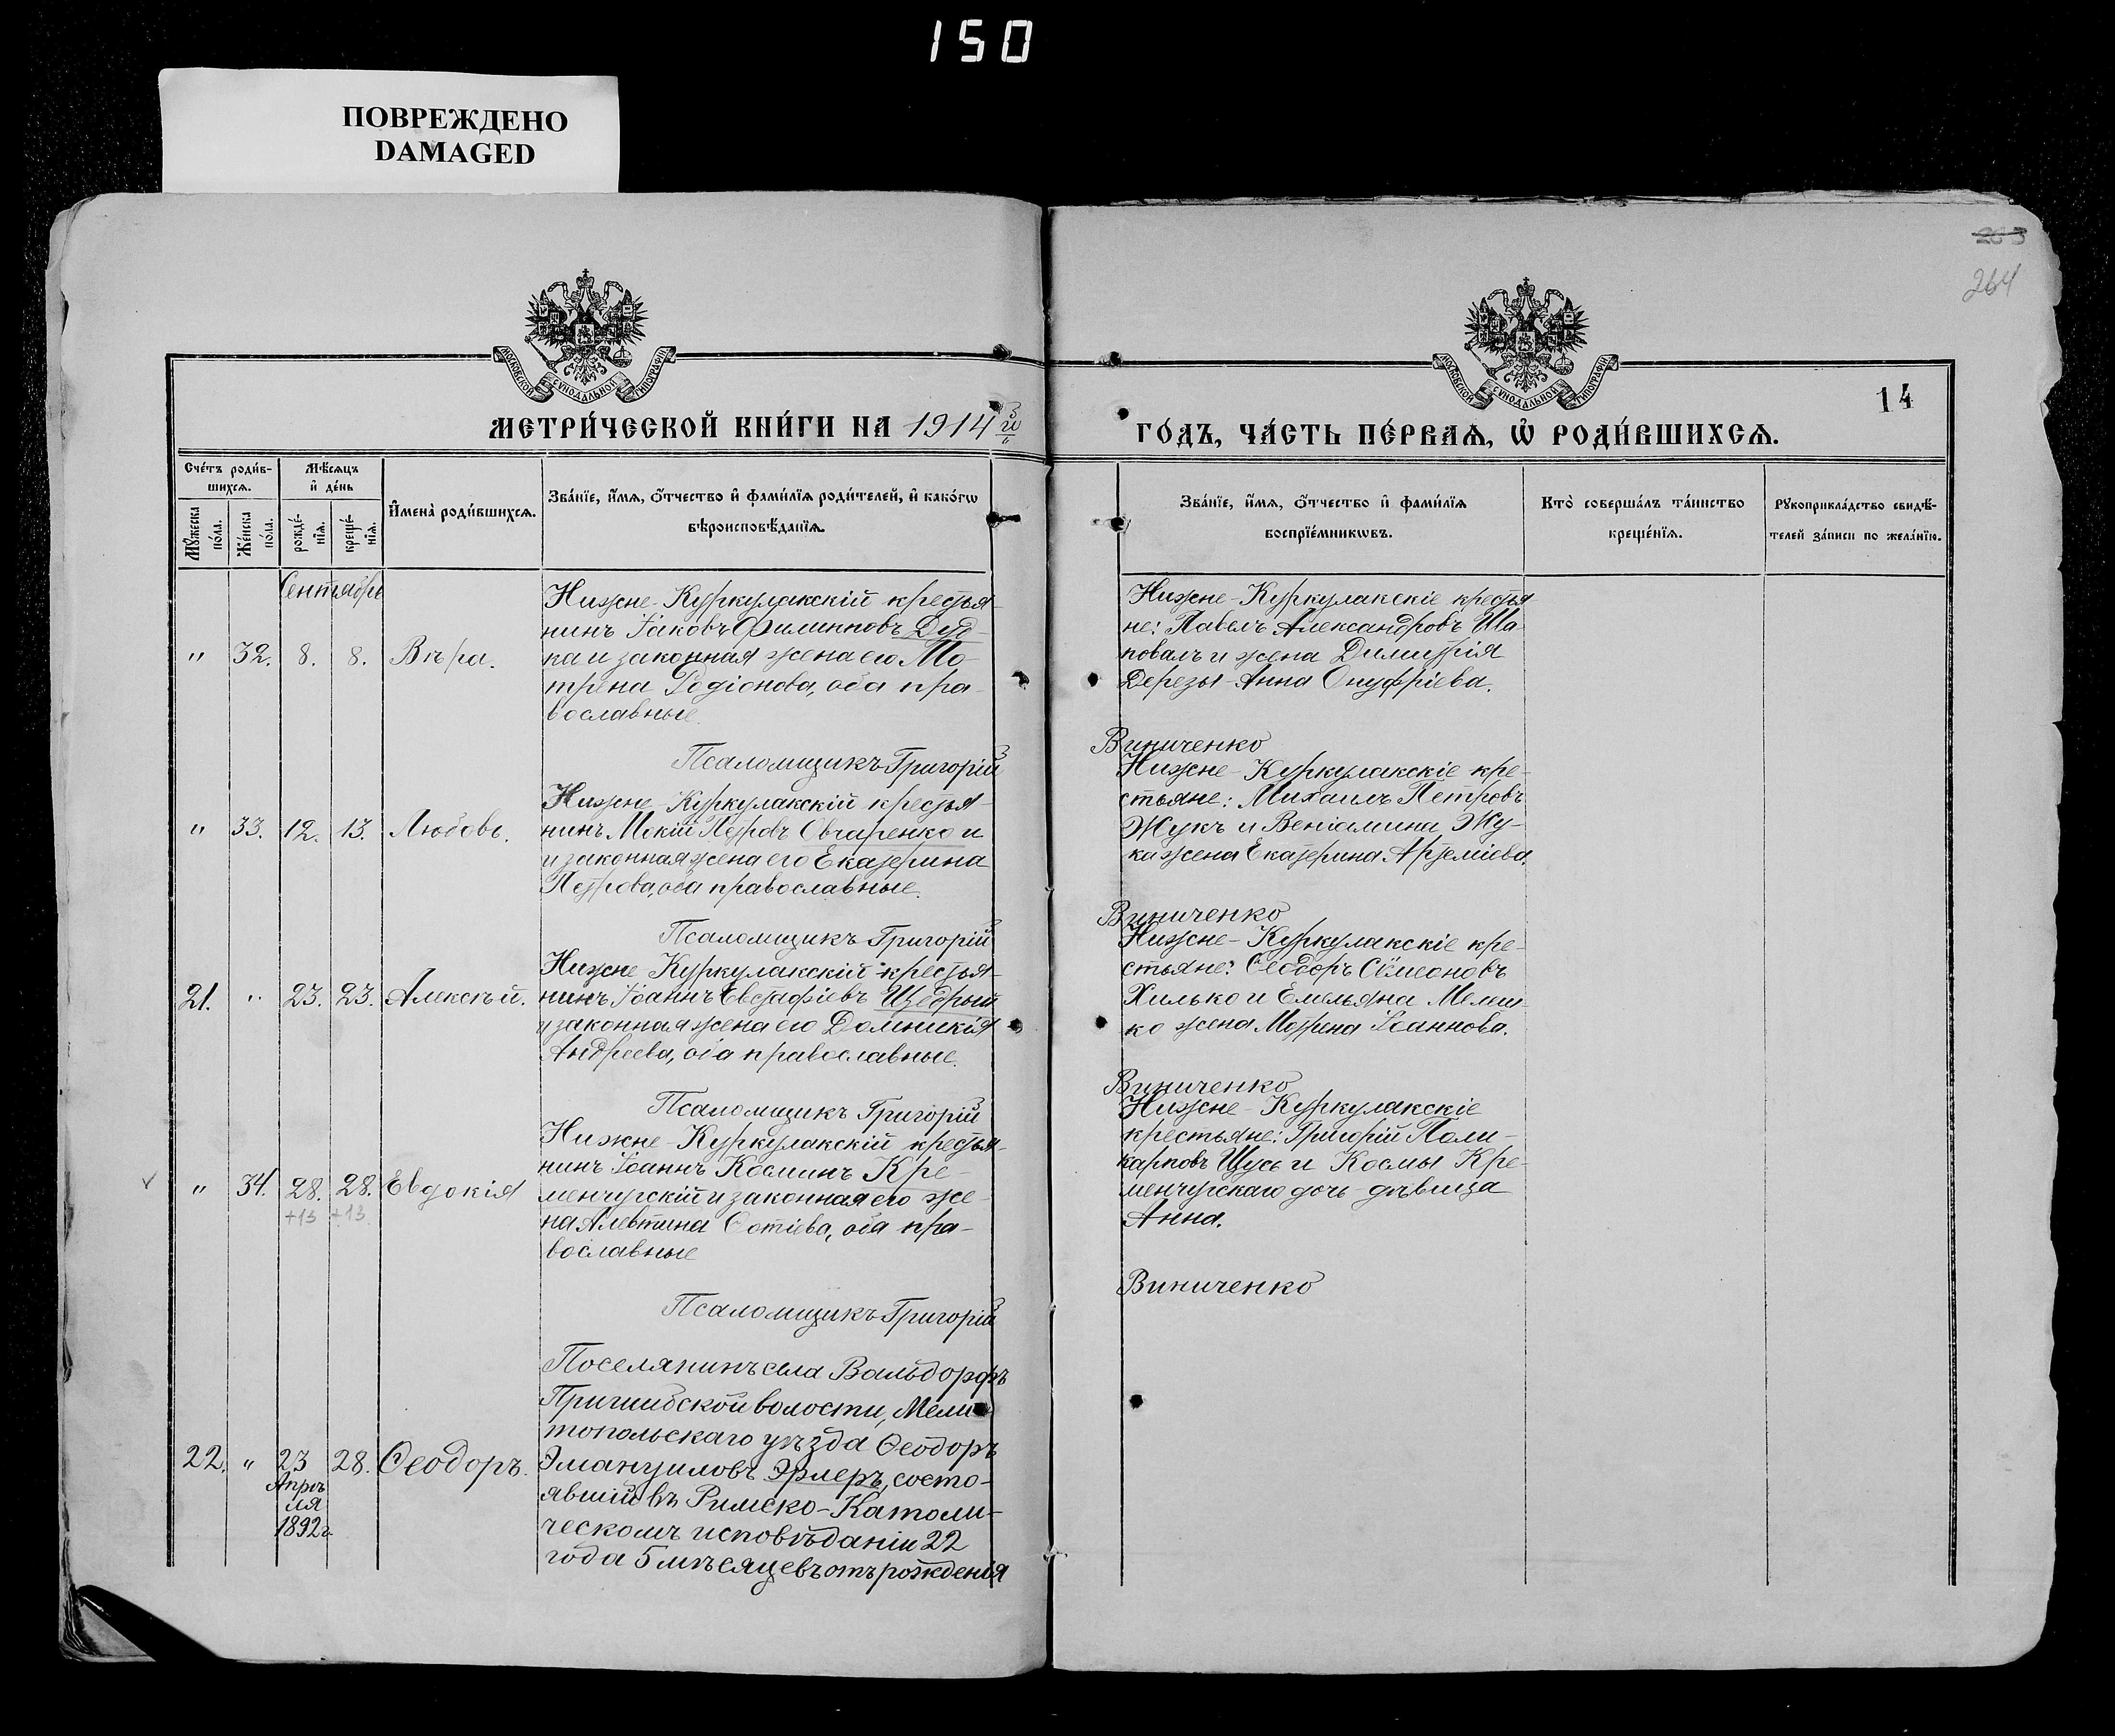 150
ПОВРЕЖДЕНО
DAMAGED
264
14
МОСКОВСКОЙ СУНОДАЛЬНОЙ ТИПОГРАФІИ
МОСКОВСКОЙ СУНОДАЛЬНОЙ ТИПОГРАФІИ
МЕТРИ́ЧЕСКОЙ КНИ́ГИ НА 1914
ГО́ДЪ, ЧА́СТЬ ПЕ́РВАѦ, Ѡ҆ РОДИ́ВШИХСѦ.
Сче́тъ роди́в-
шихсѧ.
Мꙋ́жеска
по́ла.
Же́нска
по́ла.
Мѣ́сѧцъ
и҆ де́нь
рожде́-
нїѧ.
креще́-
нїѧ.
И҆мена̀ роди́вшихсѧ.
Зва́нїе, и҆́мѧ, ѻ҆́тчество и҆ фами́лїѧ роди́телей, и҆ како́гѡ
вѣроисповѣ́данїѧ.
Зва́нїе, и҆́мѧ, ѻ҆́тчество и҆ фами́лїѧ
воспрїе́мникѡвъ.
Кто̀ соверша́лъ та́инство
креще́нїѧ.
Рꙋкоприкла́дство свидѣ́-
телей за́писи по жела́нїю.
Сентябрь
" 32. 8. 8. Вѣра.
Нижне-Куркулакскій крестья-
нинъ Іаковъ Филипповъ Дуд-
ка и законная жена его Мо-
трена Родіонова, оба пра-
вославные.
Псаломщикъ Григорій
Нижне-Куркулакскіе крестья
не: Павелъ Александровъ Ша-
повалъ и жена Димитрія
Дерезы-Анна Онуфріева.
Виниченко
" 33. 12. 13. Любовь.
Нижне-Куркулакскій крестья-
нинъ Мокій Петровъ Овчаренко и
и законная жена его Екатерина
Петрова, оба православные.
Псаломщикъ Григорій
Нижне-Куркулакскіе кре-
стьяне: Михаилъ Петровъ
Жукъ и Веніамина Жу-
ка жена Екатерина Артеміева.
Виниченко
21. " 23. 23. Алексѣй.
Нижне Куркулакскій крестья-
нинъ Іоаннъ Евстафіевъ Щедрый
и законная жена его Домникія
Андреева, оба православные.
Псаломщикъ Григорій
Нижне-Куркулакскіе кре-
стьяне: Ѳеодоръ Сѵмеоновъ
Хилько и Емельяна Мелеш-
ко жена Мотрена Іоаннова.
Виниченко
" 34. 28. 28. Евдокія
+13 +13
Нижне-Куркулакскій крестья-
нинъ Іоаннъ Косминъ Кре-
менчугскій и законная его же-
на Алевтина Фотіева, оба пра-
вославные
Псаломщикъ Григорій
Нижне-Куркулакскіе
крестьяне: Григорій Поли-
карповъ Щусь и Космы Кре-
менчугскаго дочь-дѣвица
Анна.
Виниченко
22. " 23 28. Ѳеодоръ.
Апрѣ
ля
1892 г.
Поселянинъ села Вальдорфъ
Пришибской волости, Мели
топольскаго уѣзда Ѳеодоръ
Эмануиловъ Эрлеръ, состо-
явшій въ Римско-Католи-
ческомъ исповѣданіи 22
года 5 мѣсяцевъ отъ рожденія